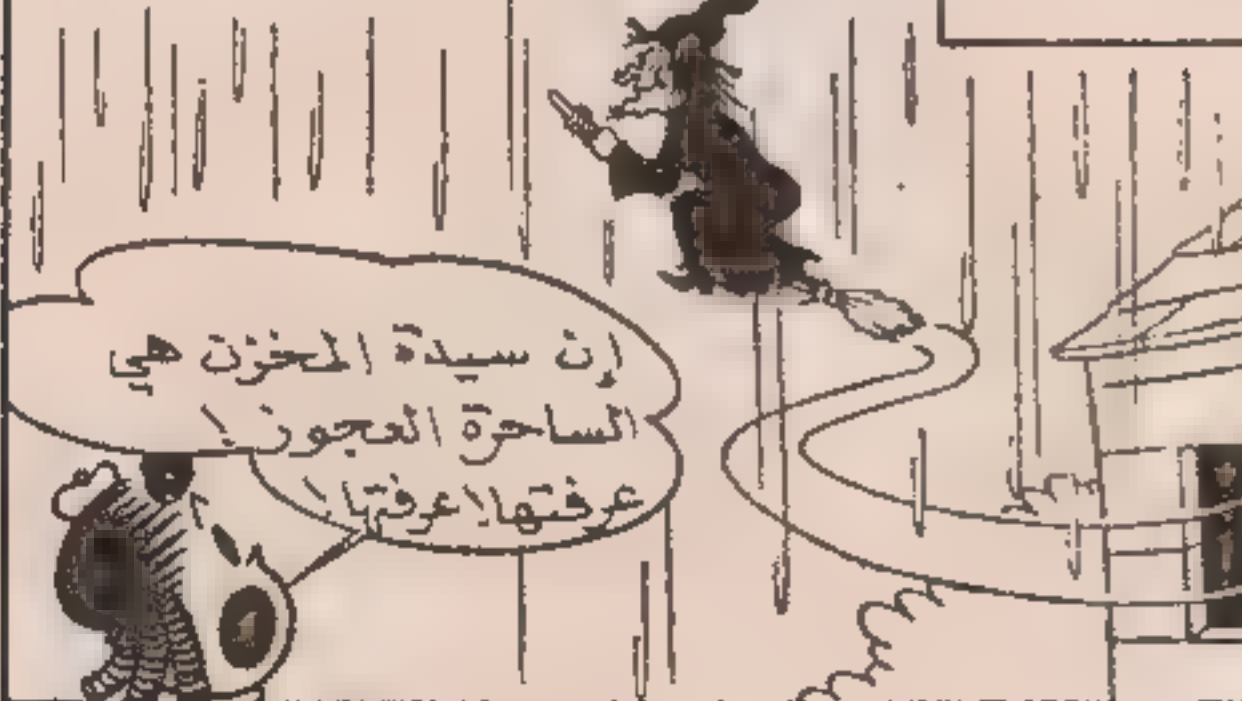 إن سيدة المخزن هي
الساحرة العجوز!
عرفتها! عرفتها!